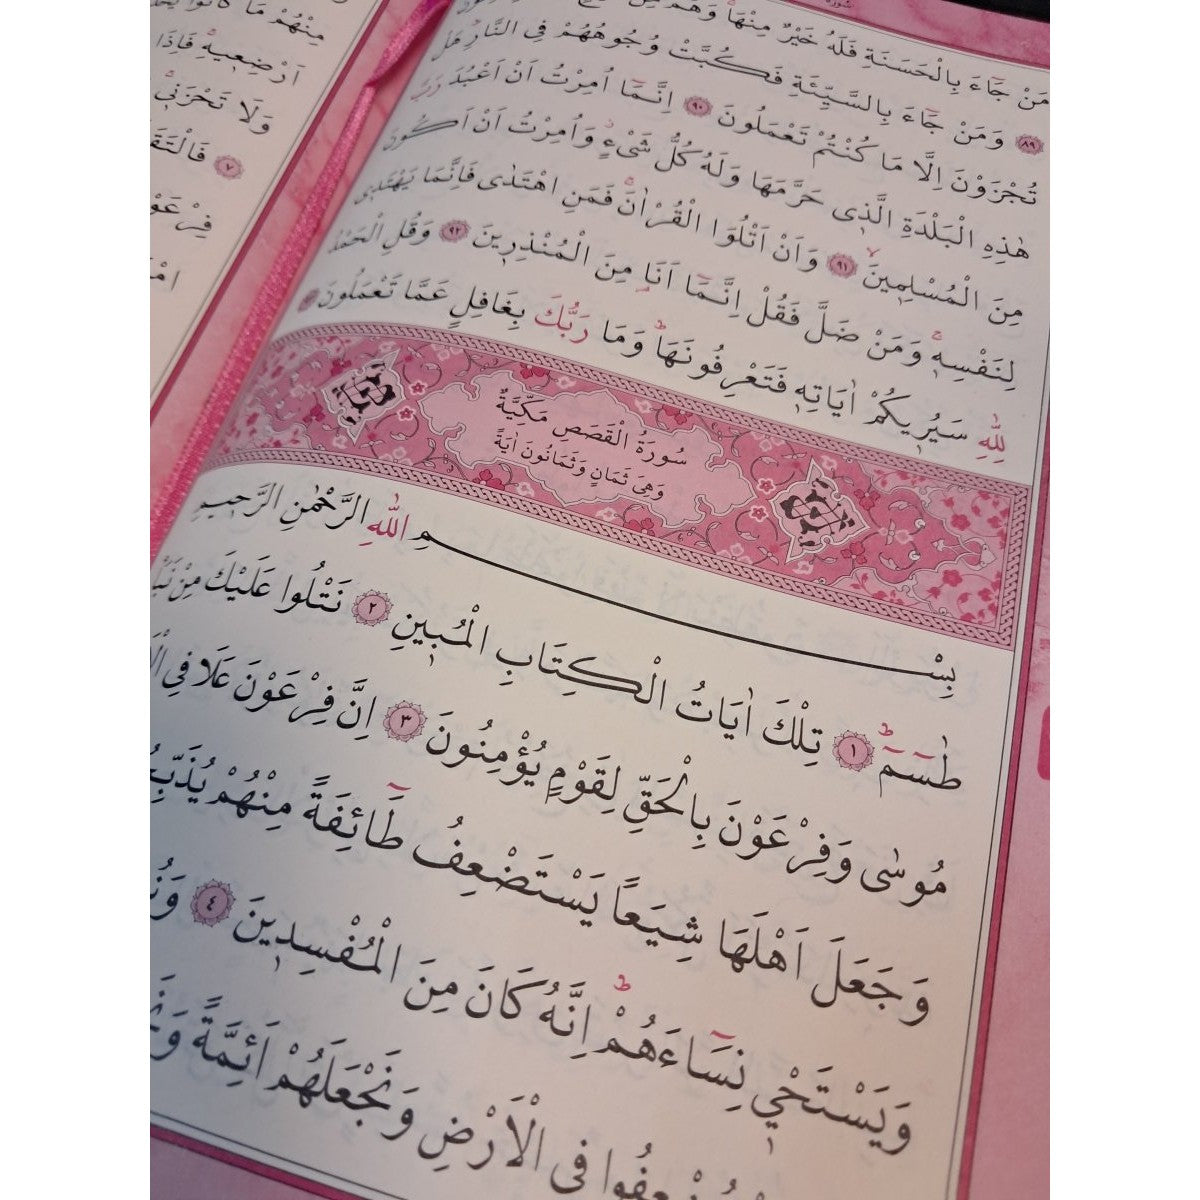 مَنْ جَٓاءَ بِالْحَسَنَةِ فَلَهُ خَيْرٌ مِنْهَاۚ وَهُمْ مِنْ
٨٩ وَمَنْ جَٓاءَ بِالسَّيِّئَةِ فَكُبَّتْ وُجُوهُهُمْ فِي النَّارِۜ هَلْ
تُجْزَوْنَ اِلَّا مَا كُنْتُمْ تَعْمَلُونَ ٩٠ اِنَّمَٓا اُمِرْتُ اَنْ اَعْبُدَ رَبَّ
هٰذِهِ الْبَلْدَةِ الَّذ۪ي حَرَّمَهَا وَلَهُ كُلُّ شَيْءٍۘ وَاُمِرْتُ اَنْ اَكُونَ
مِنَ الْمُسْلِم۪ينَۙ ٩١ وَاَنْ اَتْلُوَا الْقُرْاٰنَۚ فَمَنِ اهْتَدٰى فَاِنَّمَا يَهْتَد۪ي
لِنَفْسِه۪ۚ وَمَنْ ضَلَّ فَقُلْ اِنَّمَٓا اَنَا۬ مِنَ الْمُنْذِر۪ينَ ٩٢ وَقُلِ الْحَمْدُ
لِلّٰهِ سَيُر۪يكُمْ اٰيَاتِه۪ فَتَعْرِفُونَهَاۜ وَمَا رَبُّكَ بِغَافِلٍ عَمَّا تَعْمَلُونَ
سُورَةُ الْقَصَصِ مَكِّيَّةٌ
وَهِيَ ثَمَانٍ وَثَمَانُونَ اٰيَةً
بِسْمِ اللّٰهِ الرَّحْمٰنِ الرَّح۪يمِ
طٰسٓمٓۜ ١ تِلْكَ اٰيَاتُ الْكِتَابِ الْمُب۪ينِ ٢ نَتْلُوا عَلَيْكَ مِنْ
مُوسٰى وَفِرْعَوْنَ بِالْحَقِّ لِقَوْمٍ يُؤْمِنُونَ ٣ اِنَّ فِرْعَوْنَ عَلَا فِي
وَجَعَلَ اَهْلَهَا شِيَعاً يَسْتَضْعِفُ طَٓائِفَةً مِنْهُمْ
وَيَسْتَحْي۪ نِسَٓاءَهُمْۜ اِنَّهُ كَانَ مِنَ الْمُفْسِد۪ينَ ٤
فِي الْاَرْضِ وَنَجْعَلَهُمْ اَئِمَّةً
مِنْهُمْ مَا كَانُوا
اَرْضِع۪يهِۚ فَاِذَا
وَلَا تَحْزَن۪يۚ
٧
فِرْعَوْ